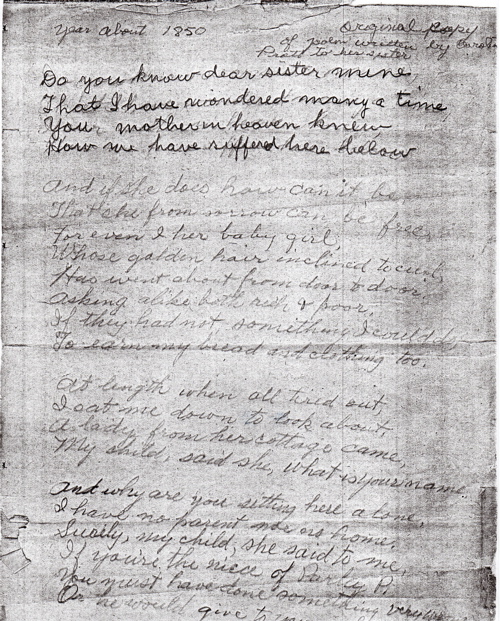 Year about 1850
Original copy
of poem written by
Pratt to her sister
Do you know dear sister mine
That I have wondered many a time
Your mother in heaven knew
How we have suffered here below
And if she does how can it be
That she from sorrow can be free
For even I her baby girl,
Whose golden hair inclined to curl,
Has went about from door to door,
asking alike both rich & poor,
If they had not something I could do,
To earn my bread and clothing too.
At length when all tired out,
I sat me down to look about,
A lady from her cottage came,
My child, said she, what is your name
And why are you sitting here alone,
I have no parent nor no home.
Surely, my child, she said to me,
If you're the niece of Parley P.
You must have done something very
Or he would give to